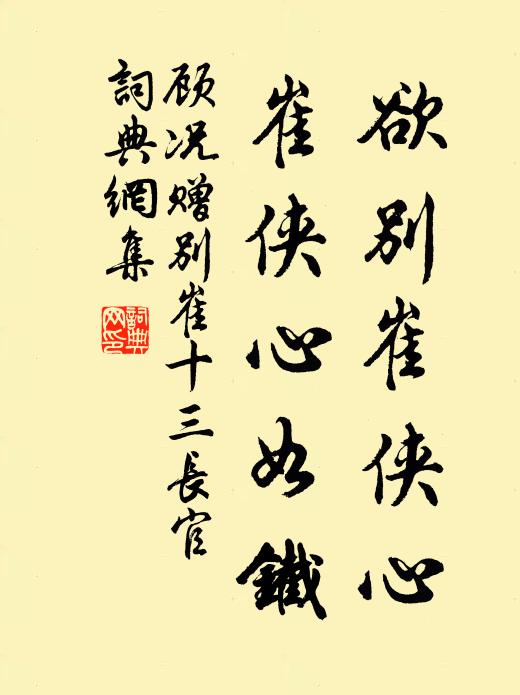 欲别崔侠心
崔侠心如鐵
顾况赠别崔十三長官
詞典網集
詞典网印